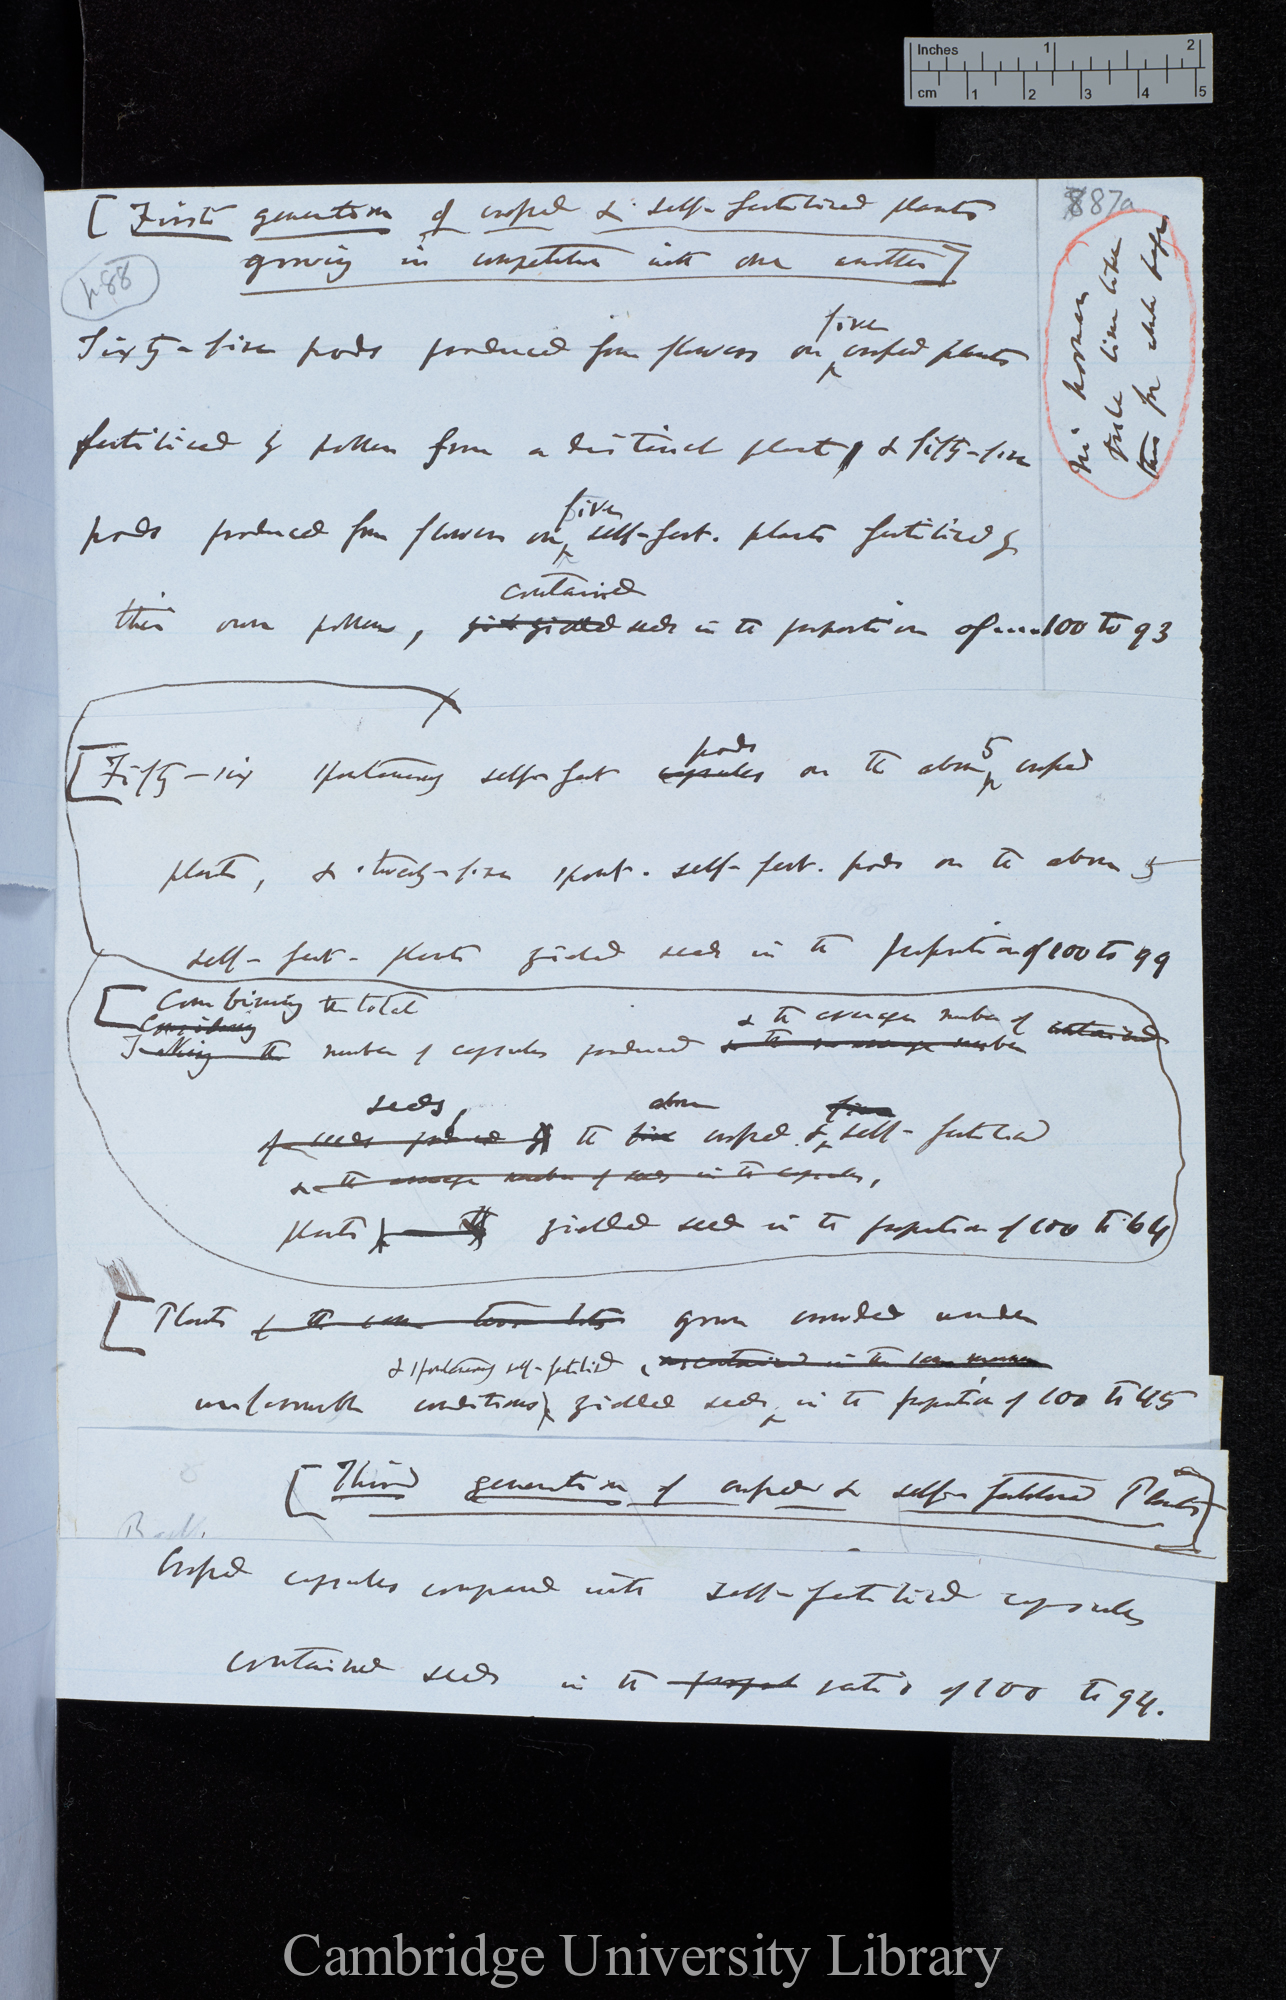 Inches 1 2
cm 1 2 3 4 5
87a
[First generation of crossed & self-fertilised plants
growing in competition with one another]
488
five
Sixty-five pods produced from flowers on crossed plants
fertilised by pollen from a distinct plant, & fifty-five
five
pods produced from flowers on self-fert. plants fertilised by
contained
their own pollen, yielded seeds in the proportion of 100 to 93
pods 5
[Fifty-six spontaneously self-fert capsules on the above crossed
plants, & twenty-five spont. self-fert. pods on the above 5
self-fert- plants yielded seeds in the proportion of 100 to 99
[Combining the total
Considering & the average number of contained
Taking the number of capsules produced & the average number
seeds, above five
of seeds produced by the five crossed & self-fertilised
& the average number of seeds in the capsules,
plants yielded seeds in the proportion of 100 to 64
[Plants of the same two lots grown crowded under
& spontaneously self-fertilised, ascertained in the same manner
unfavourable conditions yielded seeds in the proportion of 100 to 45
[Third generation of crossed & self-fertilised Plants]
Back.
Crossed capsules compared with self-fertilised capsules
contained seeds in the proport ratio of 100 to 94.
in
double lines like
this for whole page
Cambridge University Library